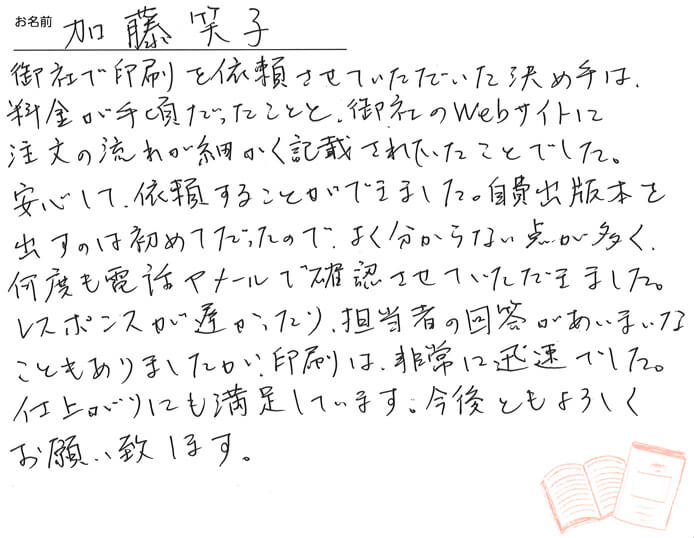 お名前 加藤笑子
御社で印刷を依頼させていただいた決め手は、
料金が手頃だったことと、御社のWebサイトに
注文の流れが細かく記載されていたことでした。
安心して、依頼することができました。自費出版本を
出すのは初めてだったので、よく分からない点が多く、
何度も電話やメールで確認させていただきました。
レスポンスが遅かったり、担当者の回答があいまいな
こともありましたが、印刷は、非常に迅速でした。
仕上がりにも満足しています。今後ともよろしく
お願い致します。